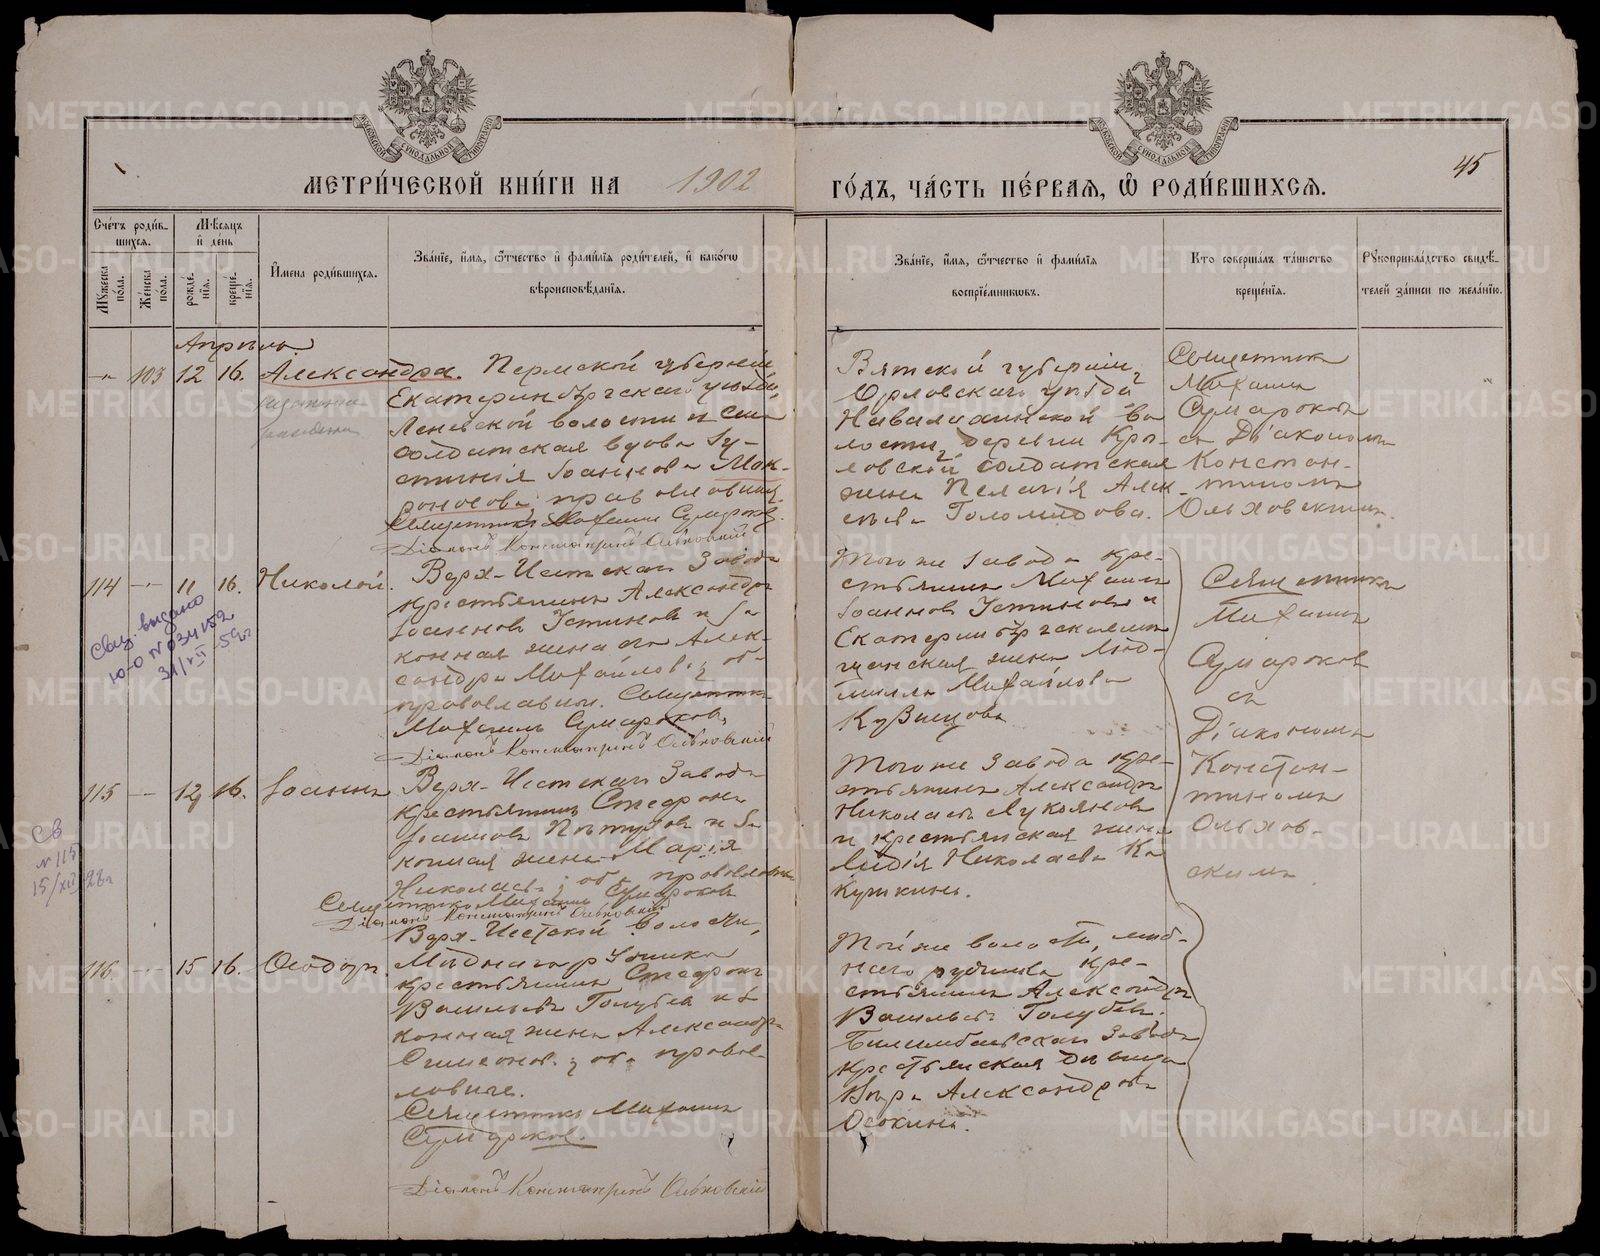 МЕТРИ́ЧЕСКОЙ КНИ́ГИ НА 1902 ГО́ДЪ, ЧА́СТЬ ПЕ́РВАЯ, Ѽ РОДИ́ВШИХСЯ.
45
Сче́тъ роди́в-
шихся.
Мѣ́сяцъ
и́ де́нь
Му́жеска по́ла.
Же́нска по́ла.
рожде́-
нїя.
креще́-
нїя.
И҆мена роди́вшихся.
Зва́нїе, и҆́мя, ѻ҆́тчество и҆ фами́лїя роди́телей, и҆ како́гѡ
вѣроисповѣ́данїя.
Зва́нїе, и҆́мя, ѻ҆́тчество и҆ фами́лїя
воспрїе́мникѡвъ.
Кто̀ соверша́лъ та́инство
креще́нїя.
Рꙋкоприкла́дство свидѣ́-
телей за́писи по жела́нїю.
Апрѣль
103 12 16. Александра.
Пермской губерніи,
Екатеринбургскаго уѣзда,
волости и села
солдатская вдова Іу-
стинія Іоаннова Мок-
роносова, православная.
Священникъ Михаилъ Сумароковъ.
Діаконъ Константинъ Ольховскій
Вятской губерніи,
Орловскаго уѣзда
во-
лости, деревни
солдатская
жена Пелагія Алек-
сѣева
Священникъ
Михаилъ
Сумароковъ
съ Діакономъ
Констан-
тиномъ
Ольховскимъ.
114 11 16. Николай.
Верх-Исетскаго Завода
крестьянинъ Александръ
Іоанновъ Устиновъ и за-
конная жена его Алек-
сандра Михайлова; оба
православные. Священникъ
Михаилъ Сумароковъ.
Діаконъ Константинъ Ольховскій
Тогоже Завода кре-
стьянинъ Михаилъ
Іоанновъ Устиновъ и
Екатеринбургская мѣ-
щанская жена Люд-
милла Михайлова
Кузнецова
Священникъ
Михаилъ
Сумароковъ
съ
Діакономъ
Констан-
тиномъ
Ольхов-
скимъ
Свид. выдано
ю-о № 034152
31/VII-59г
115 12 16. Іоаннъ
Верх-Исетскаго Завода
крестьянинъ Стефанъ
Іоанновъ и за-
конная жена Марія
Николаева; оба православные
Священникъ Михаилъ Сумароковъ
Діаконъ Константинъ Ольховскій
Тогоже Завода кре-
стьянинъ Александръ
Николаевъ Лукояновъ
и крестьянская жена
Лидія Николаева Ко-
куркина.
Св
№ 115
15/XII-28г
116 15 16. Ѳеодоръ.
Верх-Исетской волости,
Мѣднаго рудника
крестьянинъ Стефанъ
Васильевъ Голубевъ и за-
конная жена Александра
Симеонова; оба правос-
лавные.
Священникъ Михаилъ
Сумароковъ.
Діаконъ Константинъ Ольховскій
Тойже волости, мѣд-
наго рудника кре-
стьянинъ Александръ
Васильевъ Голубевъ.
Билимбаевскаго Завода
крестьянская дѣвица
Вѣра Александрова
Осокина.